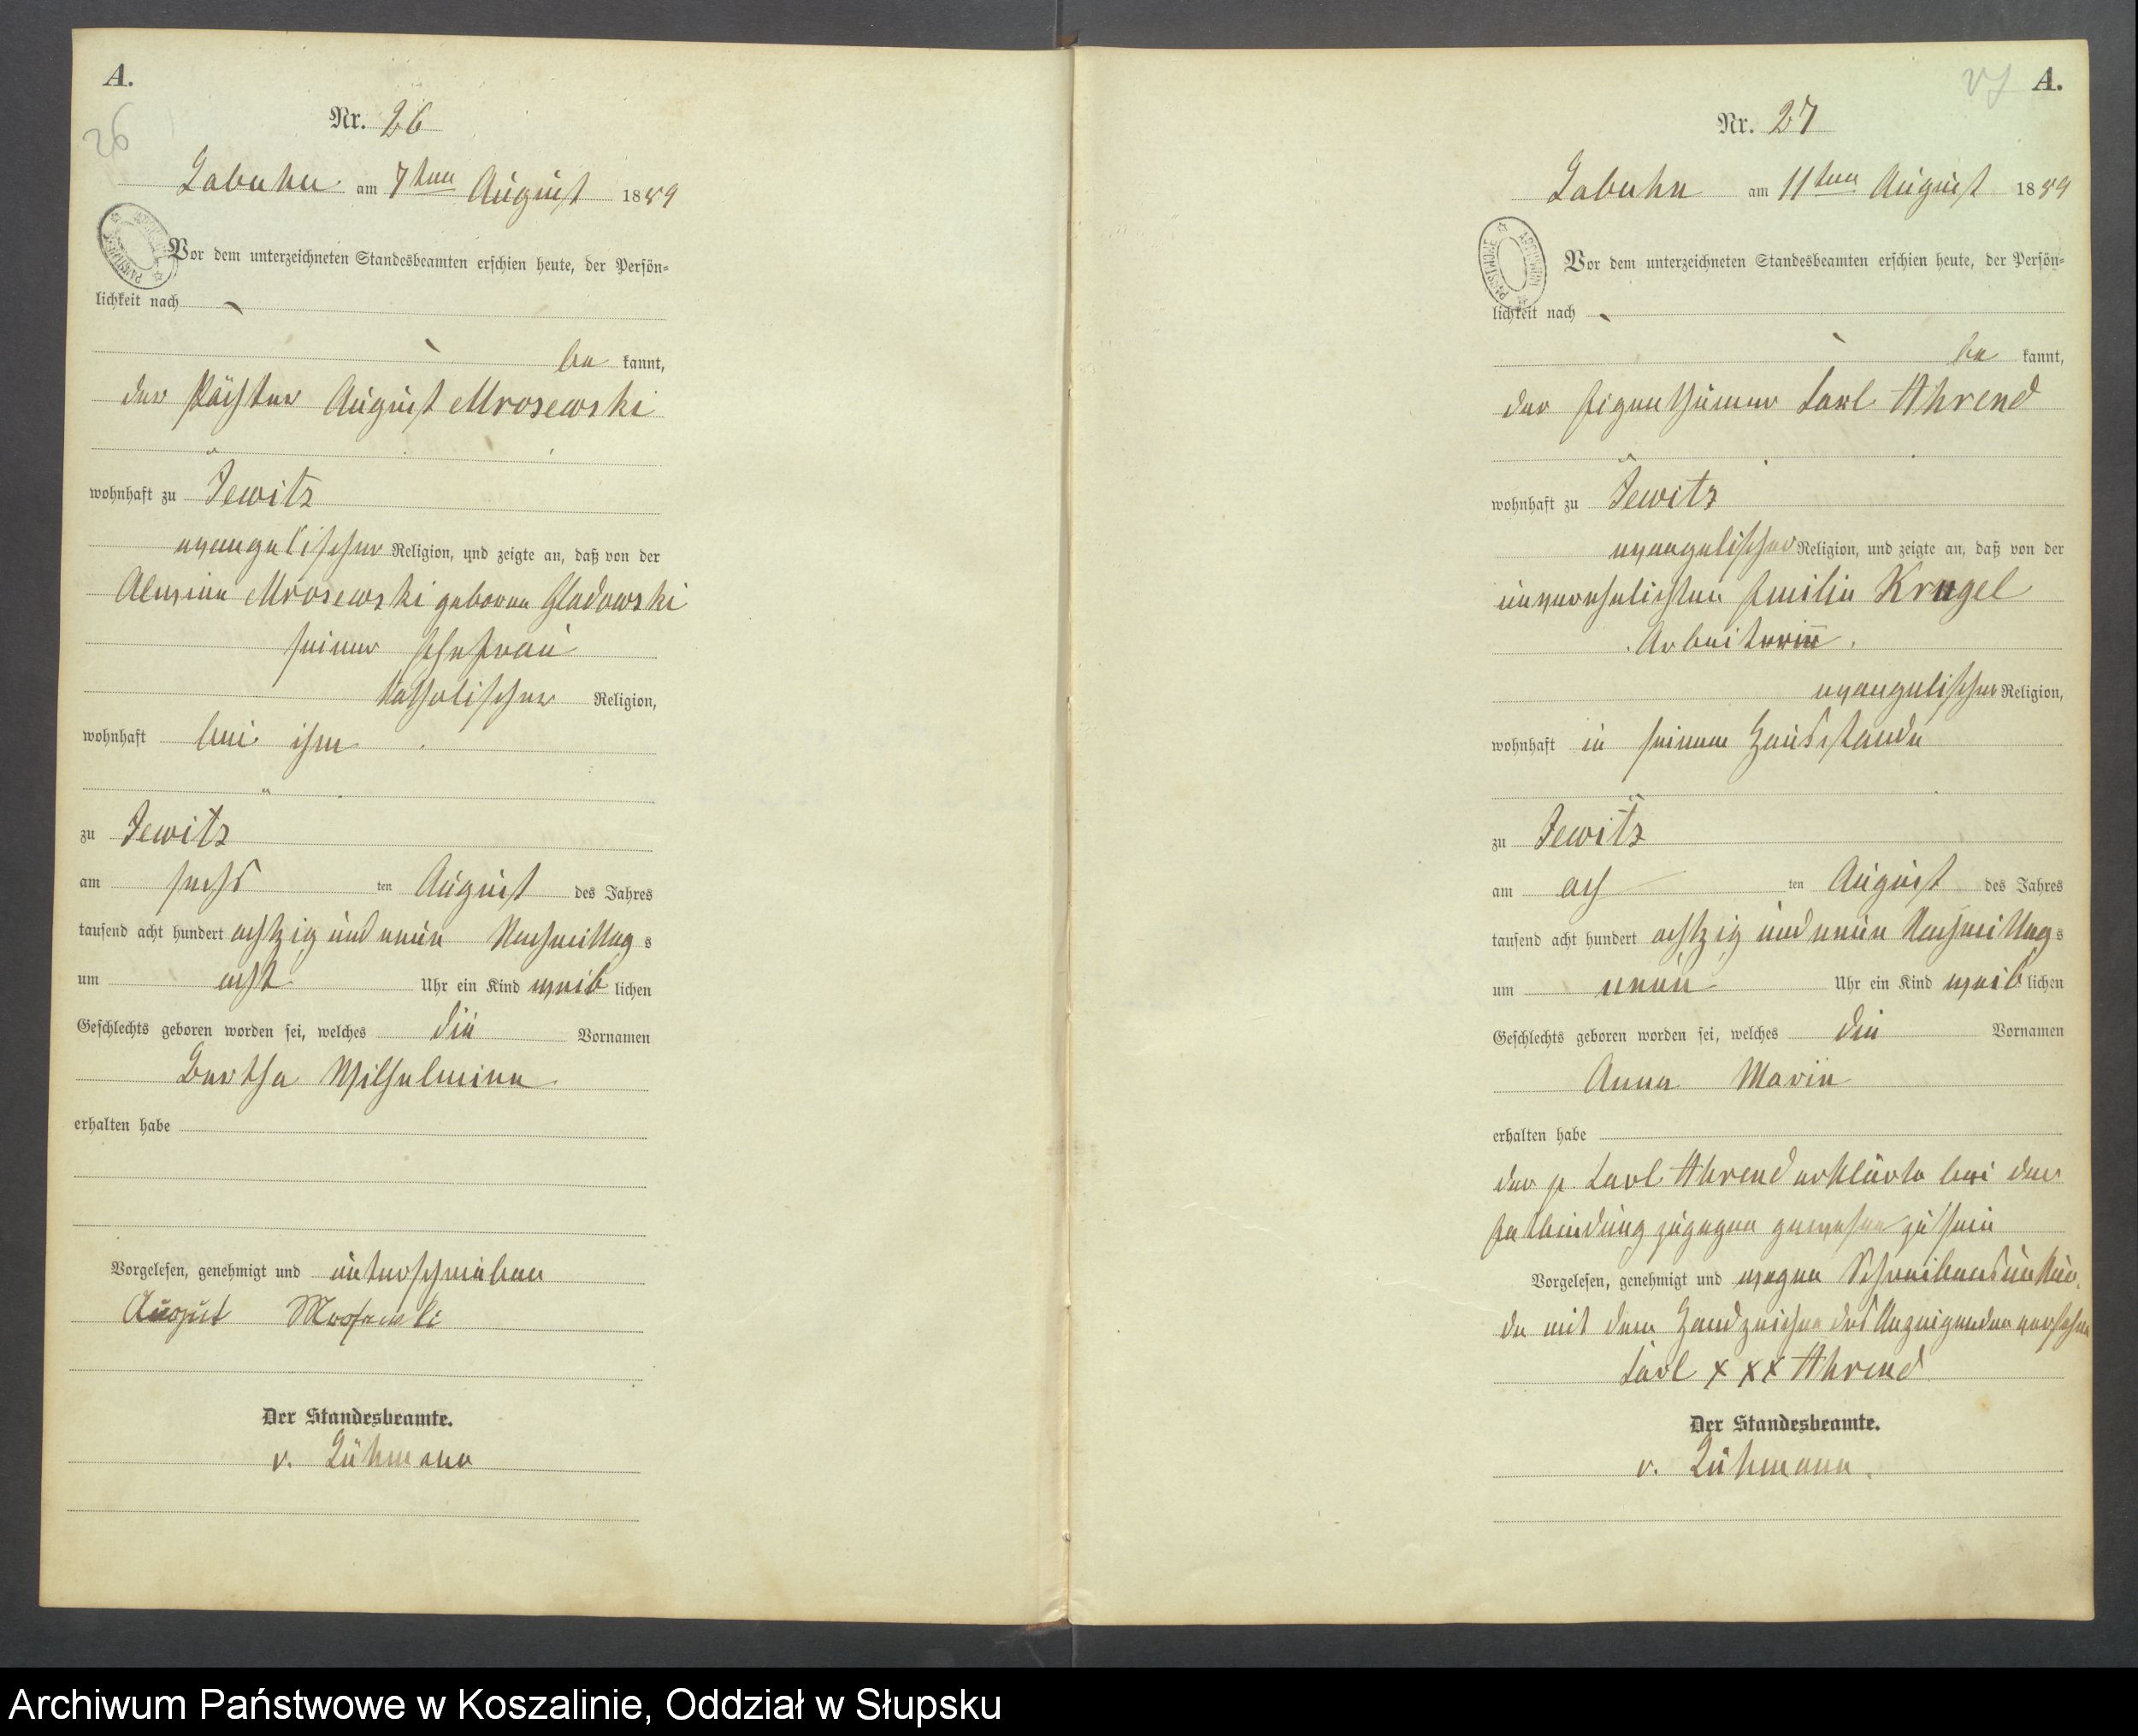 A.
26
Nr. 26
Labuhn am 7ten August 1889
Vor dem unterzeichneten Standesbeamten erschien heute, der Persön=
lichkeit nach
be kannt,
der Pächter August Mrosewski
wohnhaft zu Jewitz
evangelischer Religion, und zeigte an, daß von der
Alwine Mrosewski geborne Gladowski
seiner Ehefrau
katholischer Religion,
wohnhaft bei ihm
zu Jewitz
am sechs ten August des Jahres
tausend acht hundert achtzig und neun Nachmittag s
um acht Uhr ein Kind weib lichen
Geschlechts geboren worden sei, welches die Vornamen
Bertha Wilhelmine
erhalten habe
Vorgelesen, genehmigt und unterschrieben
August Mrosewski
Der Standesbeamte.
v. Lühmann
27 A.
Nr. 27
Labuhn am 11ten August 1889
Vor dem unterzeichneten Standesbeamten erschien heute, der Persön=
lichkeit nach
be kannt,
der Eigenthümer Carl Ahrend
wohnhaft zu Jewitz
evangelischer Religion, und zeigte an, daß von der
unverehelichten Emilie Krugel
Arbeiterin
evangelischer Religion,
wohnhaft in seinem Hausstande
zu Jewitz
am ach ten August des Jahres
tausend acht hundert achtzig und neun Nachmittag s
um neun Uhr ein Kind weib lichen
Geschlechts geboren worden sei, welches die Vornamen
Anna Marie
erhalten habe
der p. Carl Ahrend erklärte bei der
Entbindung zugegen gewesen zu sein
Vorgelesen, genehmigt und wegen Schreibensunkun-
de mit dem Handzeichen des Anzeigenden versehen
Carl x x x Ahrend
Der Standesbeamte.
v. Lühmann.
Archiwum Państwowe w Koszalinie, Oddział w Słupsku